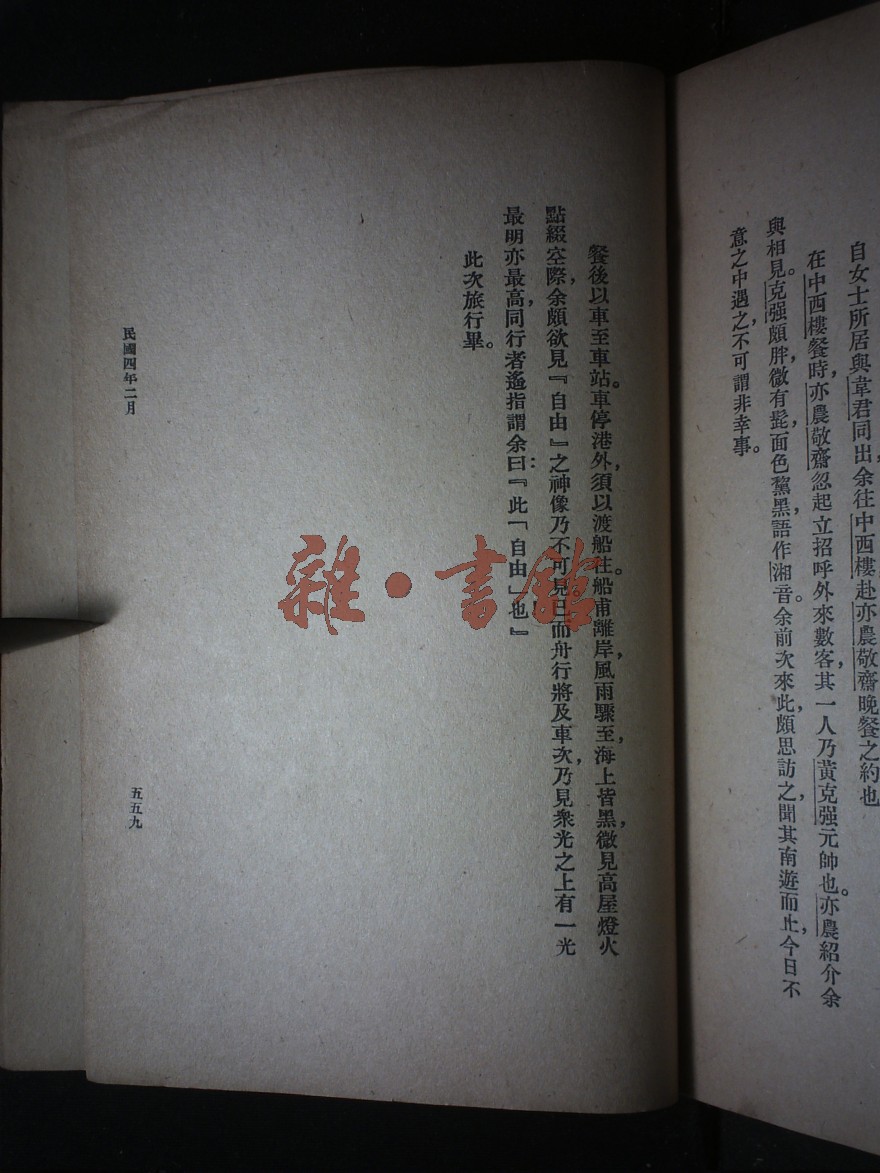 自女士所居與韋君同出余往中西樓赴亦農敬齋晚餐之約也
在中西樓餐時亦農敬齋忽起立招呼外來數客其一人乃黃克强元帥也。亦農紹介余
與相見。克强頗胖，微有髭，面色黧黑，語作湘音。余前次來此，頗思訪之，聞其南遊而止，今日不
意之中遇之，不可謂非幸事。
餐後以車至車站。車停港外，須以渡船往。船甫離岸，風雨驟至，海上皆黑，微見高屋燈火
點綴空際，余頗欲見『自由』之神像乃不可見。已而舟行將及車次，乃見衆光之上有一光
最明亦最高，同行者遙指謂余曰：『此「自由」也』
此次旅行畢。
民國四年二月
五五九
雜·書館